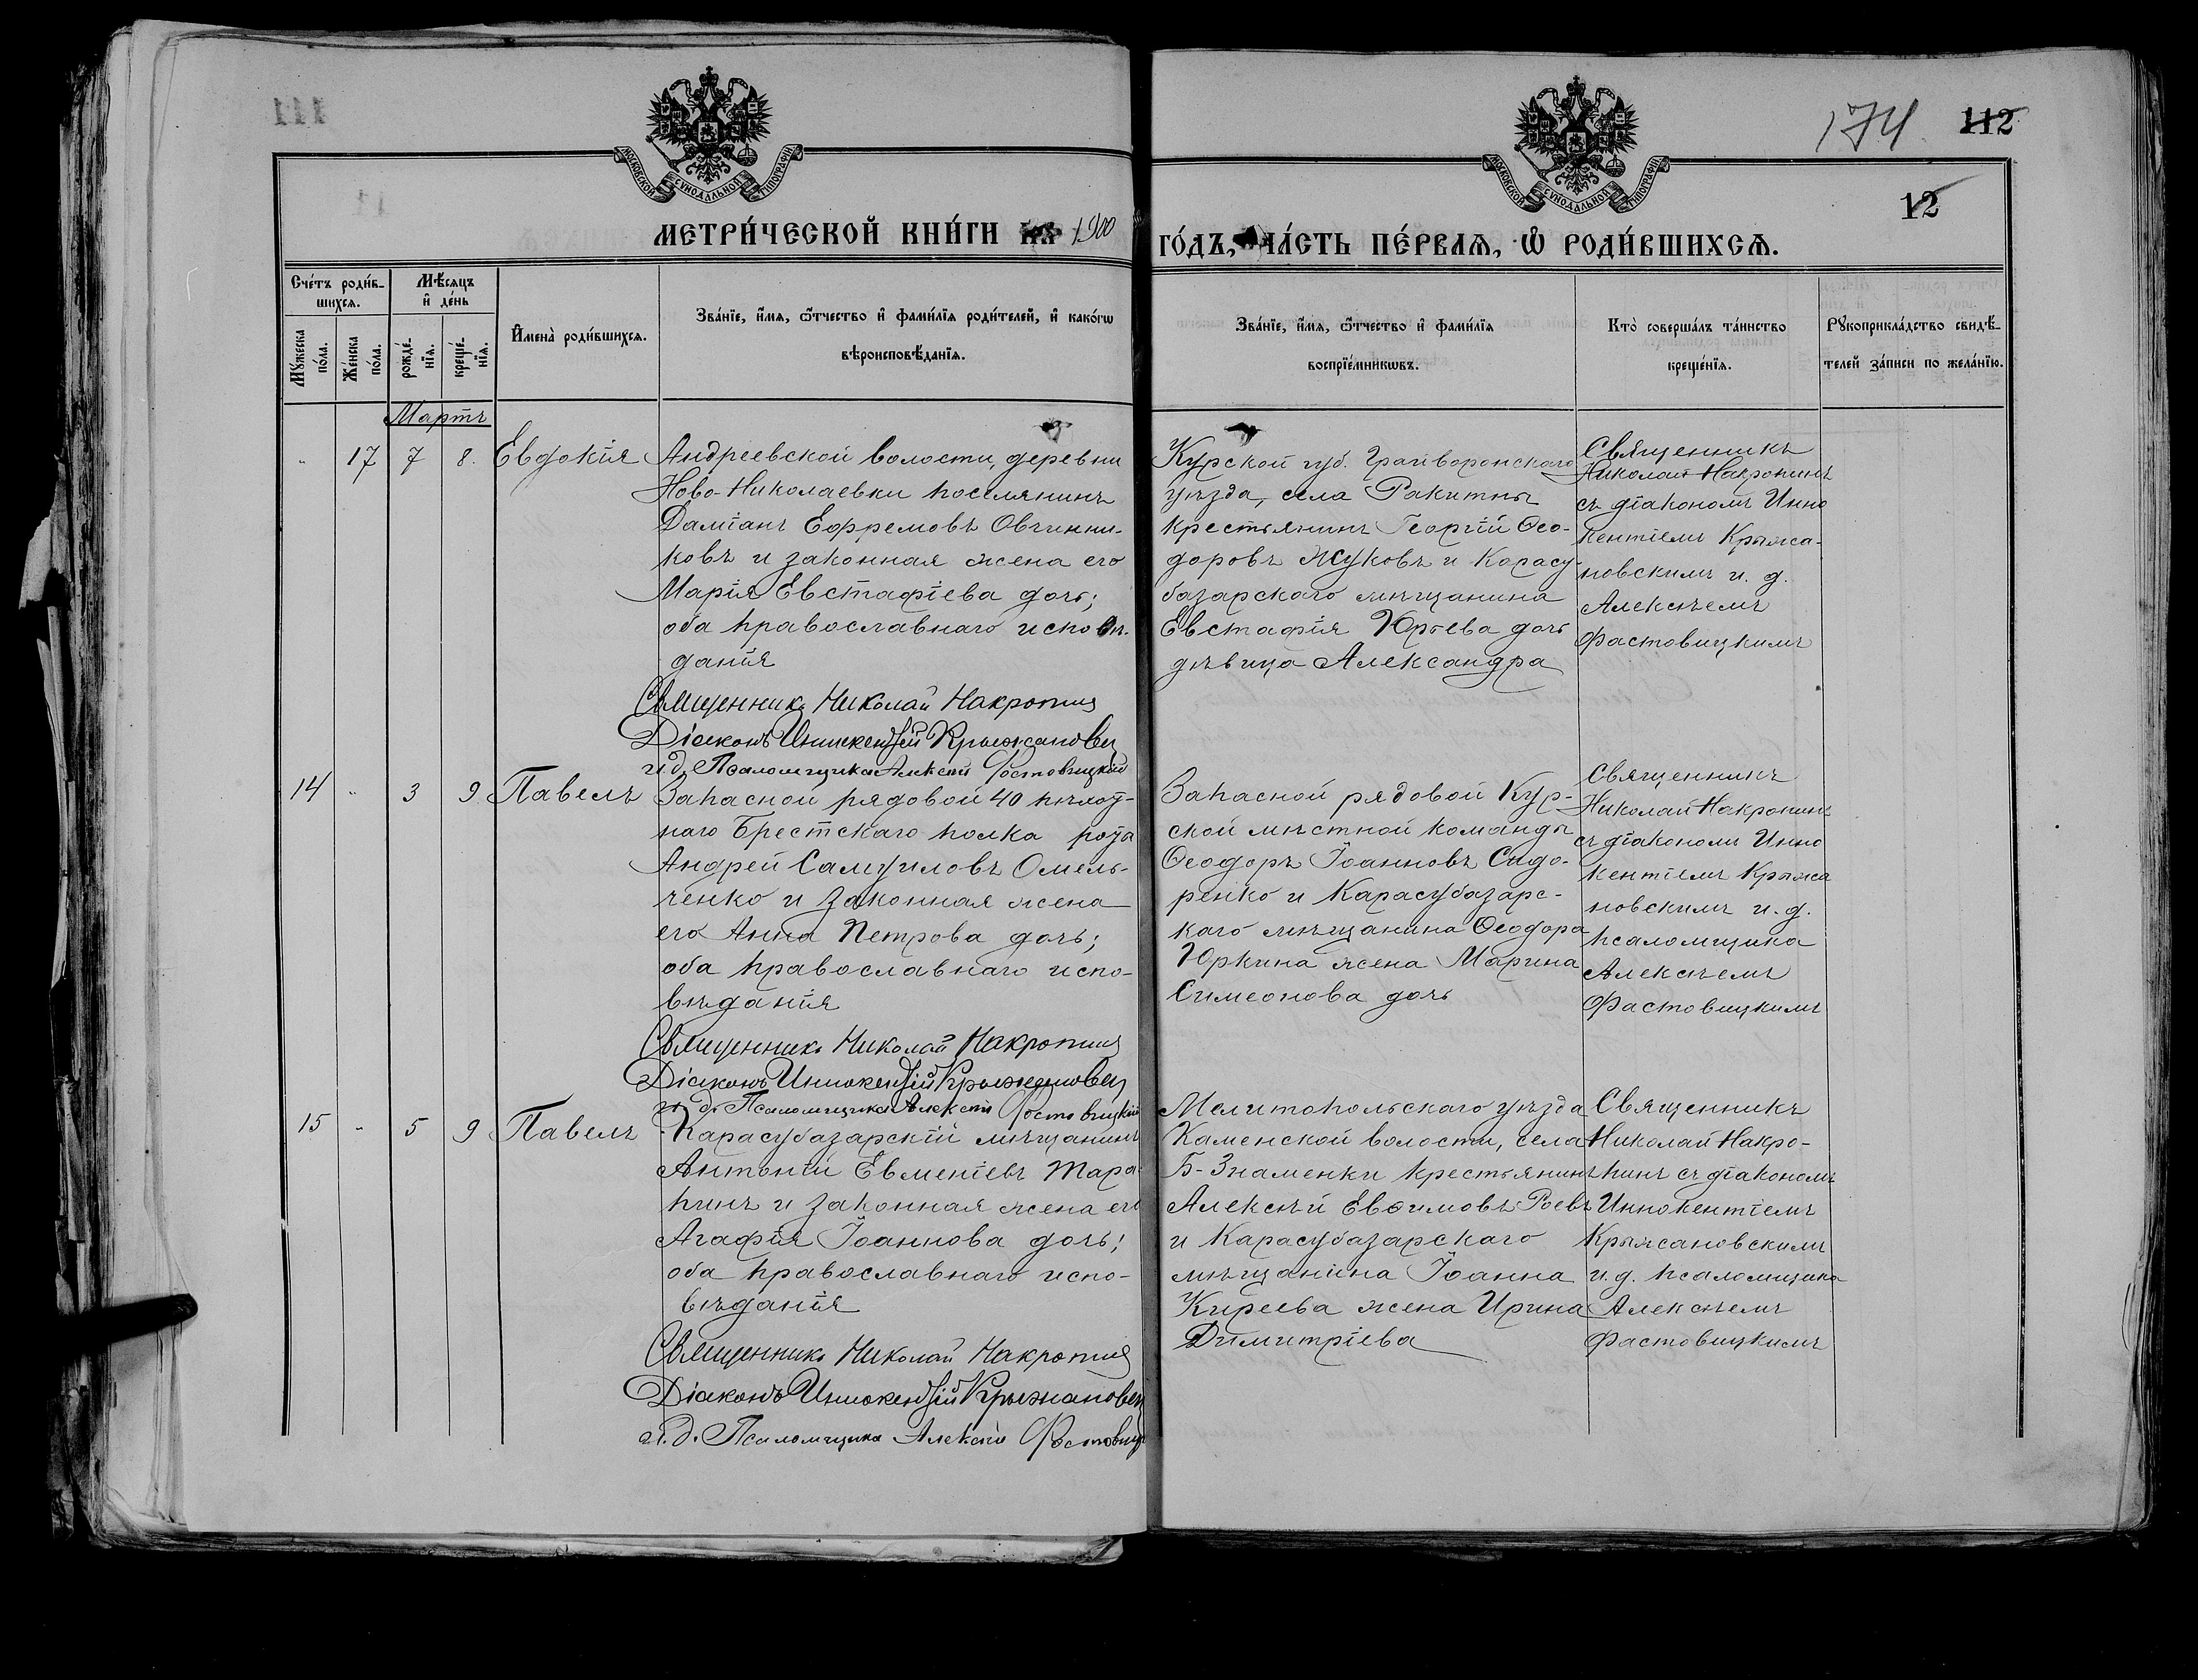 174 112
МОСКОВСКОЙ СУНОДАЛЬНОЙ ТИПОГРАФІИ
МОСКОВСКОЙ СУНОДАЛЬНОЙ ТИПОГРАФІИ
12
МЕТРИ́ЧЕСКОЙ КНИ́ГИ НА 1900
ГО́ДЪ, ЧА́СТЬ ПЕ́РВАЯ, Ѡ РОДИ́ВШИХСЯ.
Сче́тъ роди́в-
шихся.
Мꙋжеска по́ла.
Же́нска по́ла.
Мѣ́сяцъ
и҆ де́нь
рожде́-
нїя.
креще́-
нїя.
И҆мена̀ роди́вшихся.
Зва́нїе, и҆́мя, ѻ҆́тчество и҆ фами́лїя роди́телей, и҆ како́гѡ
вѣроисповѣ́данїя.
Зва́нїе, и҆́мя, ѻ҆́тчество и҆ фами́лїя
воспрїе́мникѡвъ.
Кто̀ соверша́лъ та́инство
креще́нїя.
Рꙋкоприкла́дство свидѣ́-
телей за́писи по жела́нїю.
Мартъ
17 7 8. Евдокія
Андреевской волости, деревни
Ново-Николаевки поселянинъ
Даміанъ Ефремовъ Овчинни-
ковъ и законная жена его
Марія Евстафіева дочь;
оба православнаго исповѣ-
данія
Священникъ Николай Накропинъ
Діаконъ Иннокентій Крыжановск
и. д. Псаломщика Алексѣй Фастовицкій
Курской губ. Грайворонскаго
уѣзда, села Ракитны
крестьянинъ Георгій Ѳео-
доровъ Жуковъ и Карасу-
базарскаго мѣщанина
Евстафія Юрьева дочь
дѣвица Александра
Священникъ
Николай Накропинъ
съ діакономъ Инно
кентіемъ Крыжа-
новскимъ и. д.
Алексѣемъ
Фастовицкимъ
14 3 9 Павелъ
Запасной рядовой 40 пѣхот-
наго Брестскаго полка
Андрей Самуиловъ Омель-
ченко и законная жена
его Анна Петрова дочь;
оба православнаго испо-
вѣданія
Священникъ Николай Накропинъ
Діаконъ Иннокентій Крыжановск
и. д. Псаломщика Алексѣй Фастовицкій
Запасной рядовой Кур-
ской мѣстной команды
Ѳеодоръ Іоанновъ Сидо-
ренко и Карасубазарс-
каго мѣщанина Ѳеодора
Юркина жена Марина
Симеонова дочь
Священникъ
Николай Накропинъ
съ діакономъ Инно
кентіемъ Крыжа
новскимъ и. д.
псаломщика
Алексѣемъ
Фастовицкимъ
15 5 9 Павелъ
Карасубазарскій мѣщанинъ
Антоній Евменіевъ Тара-
пинъ и законная жена его
Агафія Іоаннова дочь;
оба православнаго испо-
вѣданія
Священникъ Николай Накропинъ
Діаконъ Иннокентій Крыжановск
и. д. Псаломщика Алексѣй Фастовиц
Мелитопольскаго уѣзда
Каменской волости, села
Б-Знаменки крестьянинъ
Алексѣй Евѳимовъ Роевъ
и Карасубазарскаго
мѣщанина Іоанна
Киреева жена Ирина
Димитріева
Священникъ
Николай Накро-
пинъ съ діакономъ
Иннокентіемъ
Крыжановскимъ
и. д. псаломщика
Алексѣемъ
Фастовицкимъ